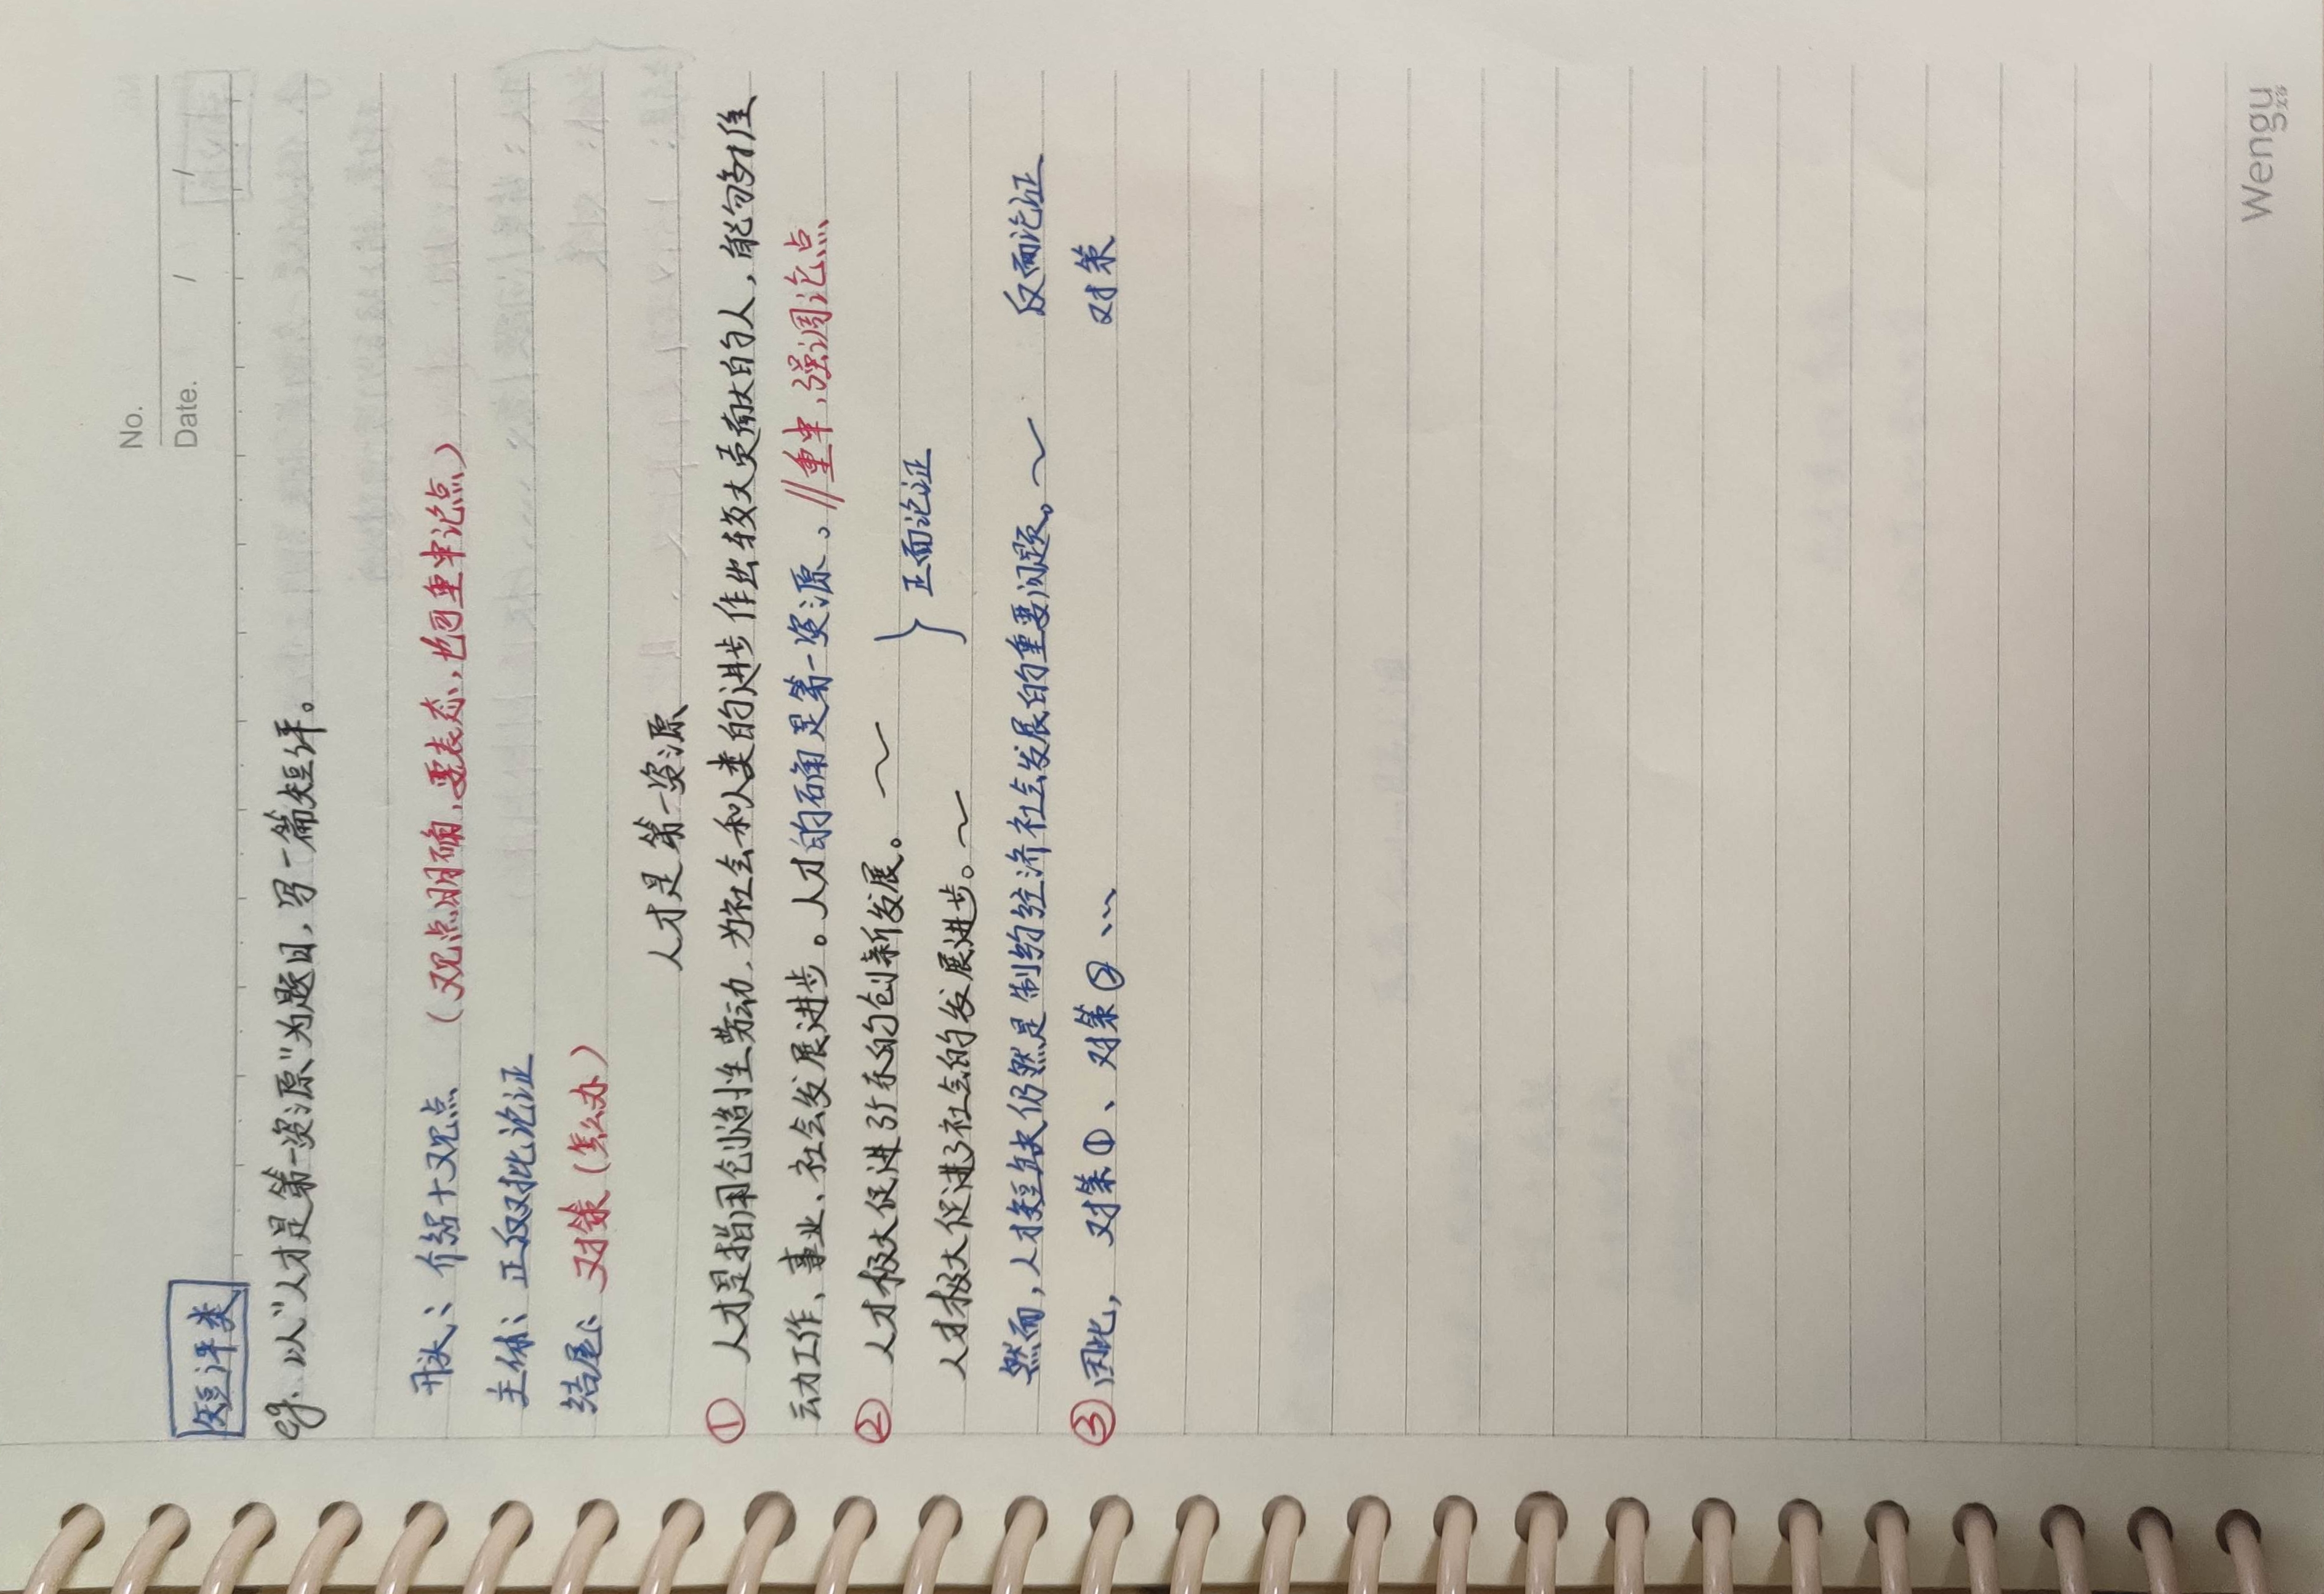 No.
Date. / /
短评类
eg. 以"人才是第一资源"为题目,写一篇短评。
开头: 介绍+观点 (观点明确,要表态,也可重申论点)
主体: 正反对比论证
结尾: 对策(怎么办)
人才是第一资源
① 人才是指用创造性劳动,为社会和人类的进步作出较大贡献大的人,能够推
动工作、事业、社会发展进步。人才的确是第一资源。//重申,强调论点
② 人才极大促进了的创新发展。 ~ } 正面论证
人才极大促进了社会的发展进步。~
然而,人才短缺仍然是制约经济社会发展的重要问题。~ 反面论证
③ 因此, 对策①、对策②… 对策
Wengu
文谷